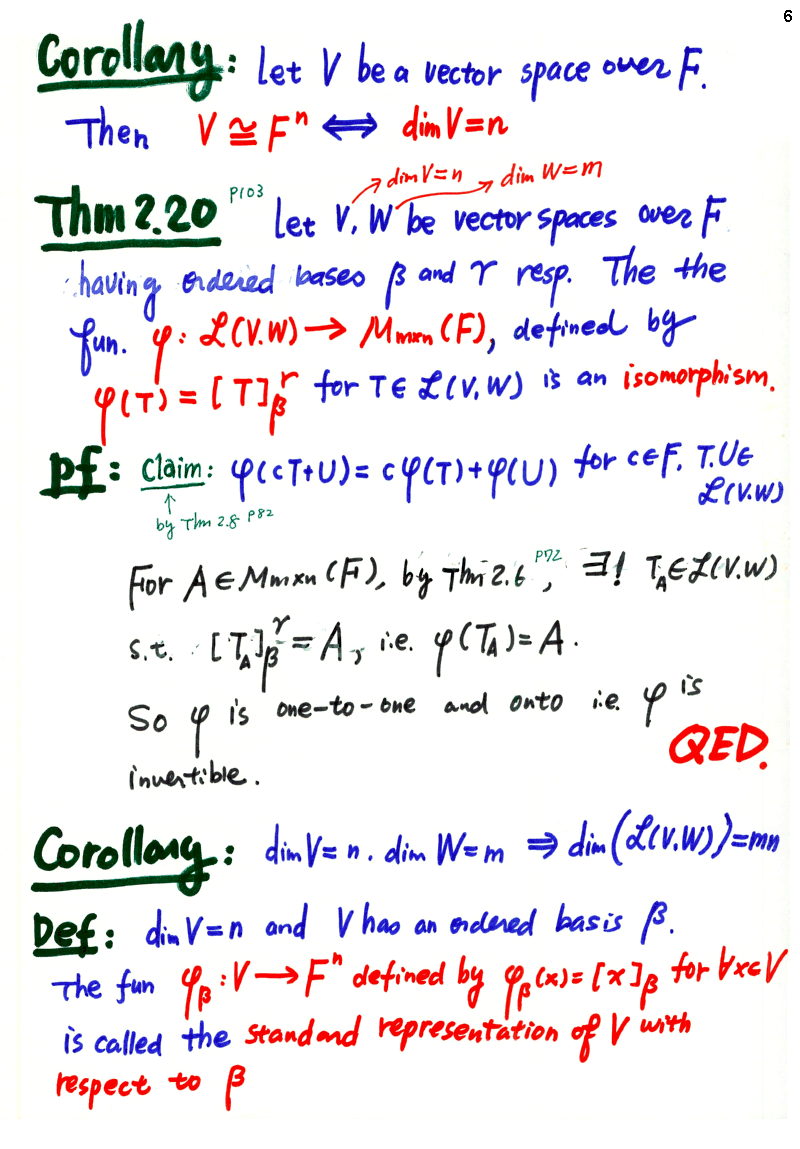 6
Corollary: Let V be a vector space over F.
Then V ≅ Fⁿ ⟺ dim V = n
Thm 2.20 P103 Let V, W be vector spaces over F
dim V = n dim W = m
having ordered bases β and γ resp. The the
fun. φ: ℒ(V.W) → Mmxn (F), defined by
φ(T) = [T]_β^γ for T ∈ ℒ(V, W) is an isomorphism.
pf: Claim: φ(cT+U) = cφ(T)+φ(U) for c∈F. T.U∈
ℒ(V.W)
↑
by Thm 2.8 P82
For A ∈ Mmxn (F), by Thm 2.6 P72, ∃! T_A ∈ ℒ(V.W)
s.t. [T_A]_β^γ = A, i.e. φ(T_A) = A.
So φ is one-to-one and onto i.e. φ is
invertible.
QED.
Corollary: dim V = n. dim W = m ⇒ dim(ℒ(V.W)) = mn
Def: dim V = n and V has an ordered basis β.
The fun φ_β : V → Fⁿ defined by φ_β(x) = [x]_β for ∀x∈V
is called the standard representation of V with
respect to β